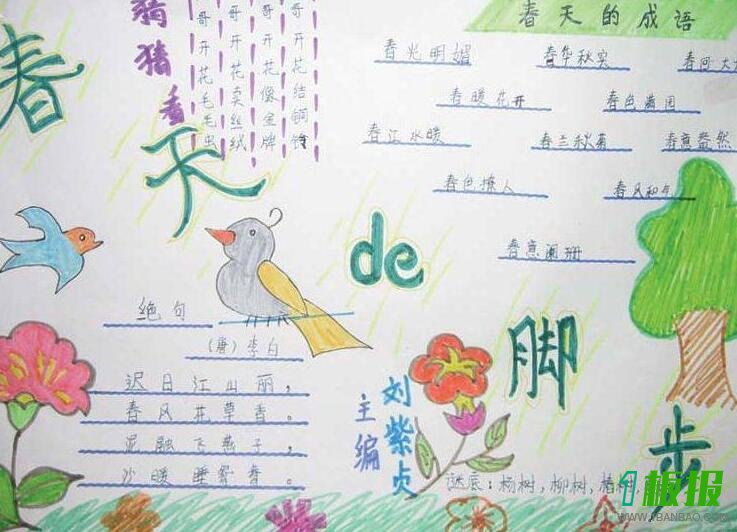 春
天
de
脚
步
猜猜看
哥开花毛毛虫
哥开花卖丝绒
哥开花像金牌
哥开花结铜铃
春天的成语
春光明媚 春华秋实
春暖花开 春色满园
春江水暖 春兰秋菊 春意盎然
春色撩人 春风和
春意阑珊
绝句
(唐)李白
迟日江山丽，
春风花草香。
泥融飞燕子，
沙暖睡鸳鸯。
主编
刘紫贞
谜底：杨树，柳树，椿树，
1板报
WWW.1BANBAO.COM